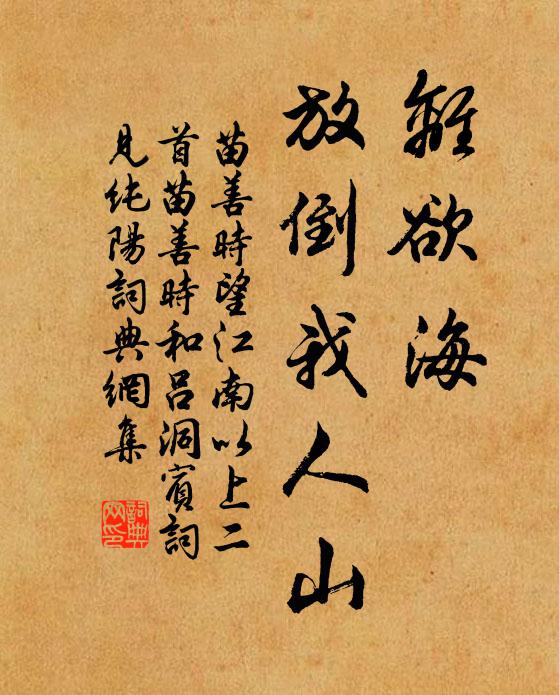 離欲海
放倒我人山
苗善時望江南以上二
首苗善時和呂洞賓詞
見純陽詞典網集
詞典
网印